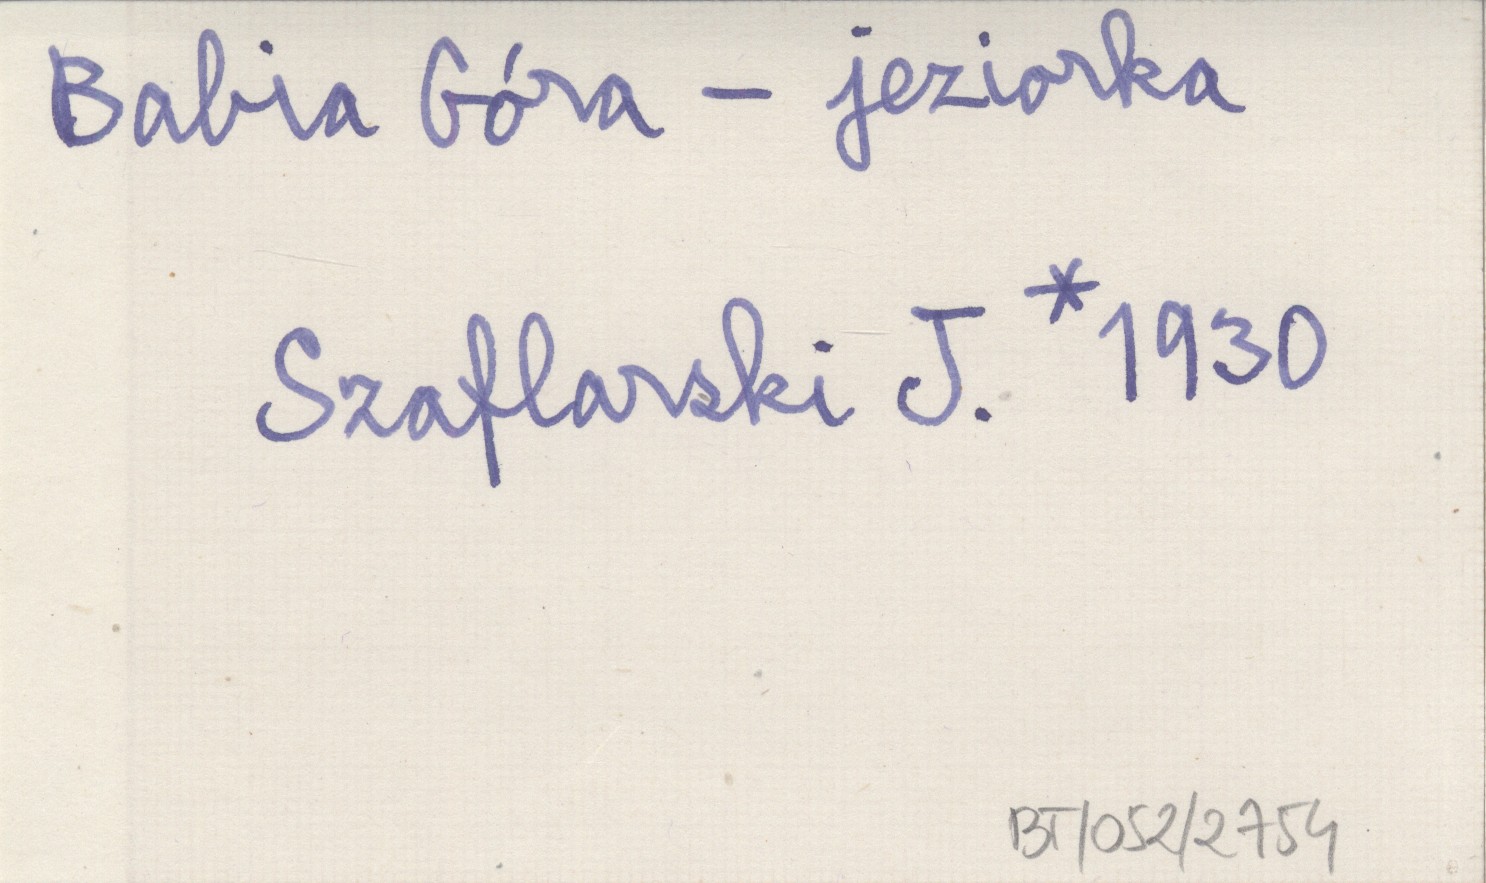 Babia Góra – jeziorka
Szaflarski J. *1930
BT/052/2754